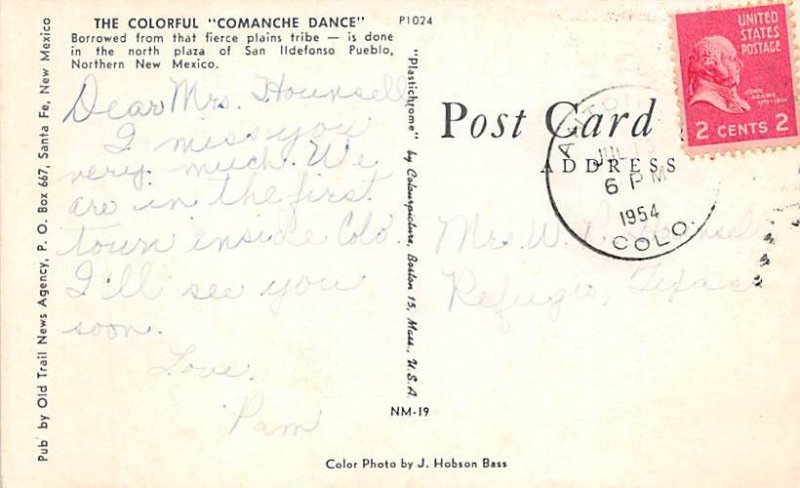 THE COLORFUL "COMANCHE DANCE" P1024
Borrowed from that fierce plains tribe — is done
in the north plaza of San Ildefonso Pueblo,
Northern New Mexico.
Dear Mrs. Hounsell
I miss you
very much. We
are in the first
town inside Colo.
I'll see you
soon.
Love.
Pam
Pub' by Old Trail News Agency, P. O. Box 667, Santa Fe, New Mexico
"Plastichrome" by Colourpicture, Boston 15, Mass., U.S.A.
NM-19
Color Photo by J. Hobson Bass
Post Card
ADDRESS
UNITED
STATES
POSTAGE
JOHN
ADAMS
2 CENTS 2
6 PM
1954
COLO.
Mrs. W. Hounsell
Refugio, Texas